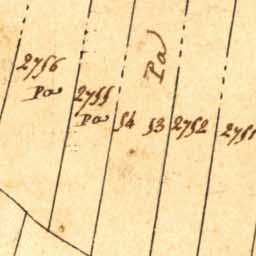 2756
Pa
2755
Pa
54
53
Pa
2752
2751